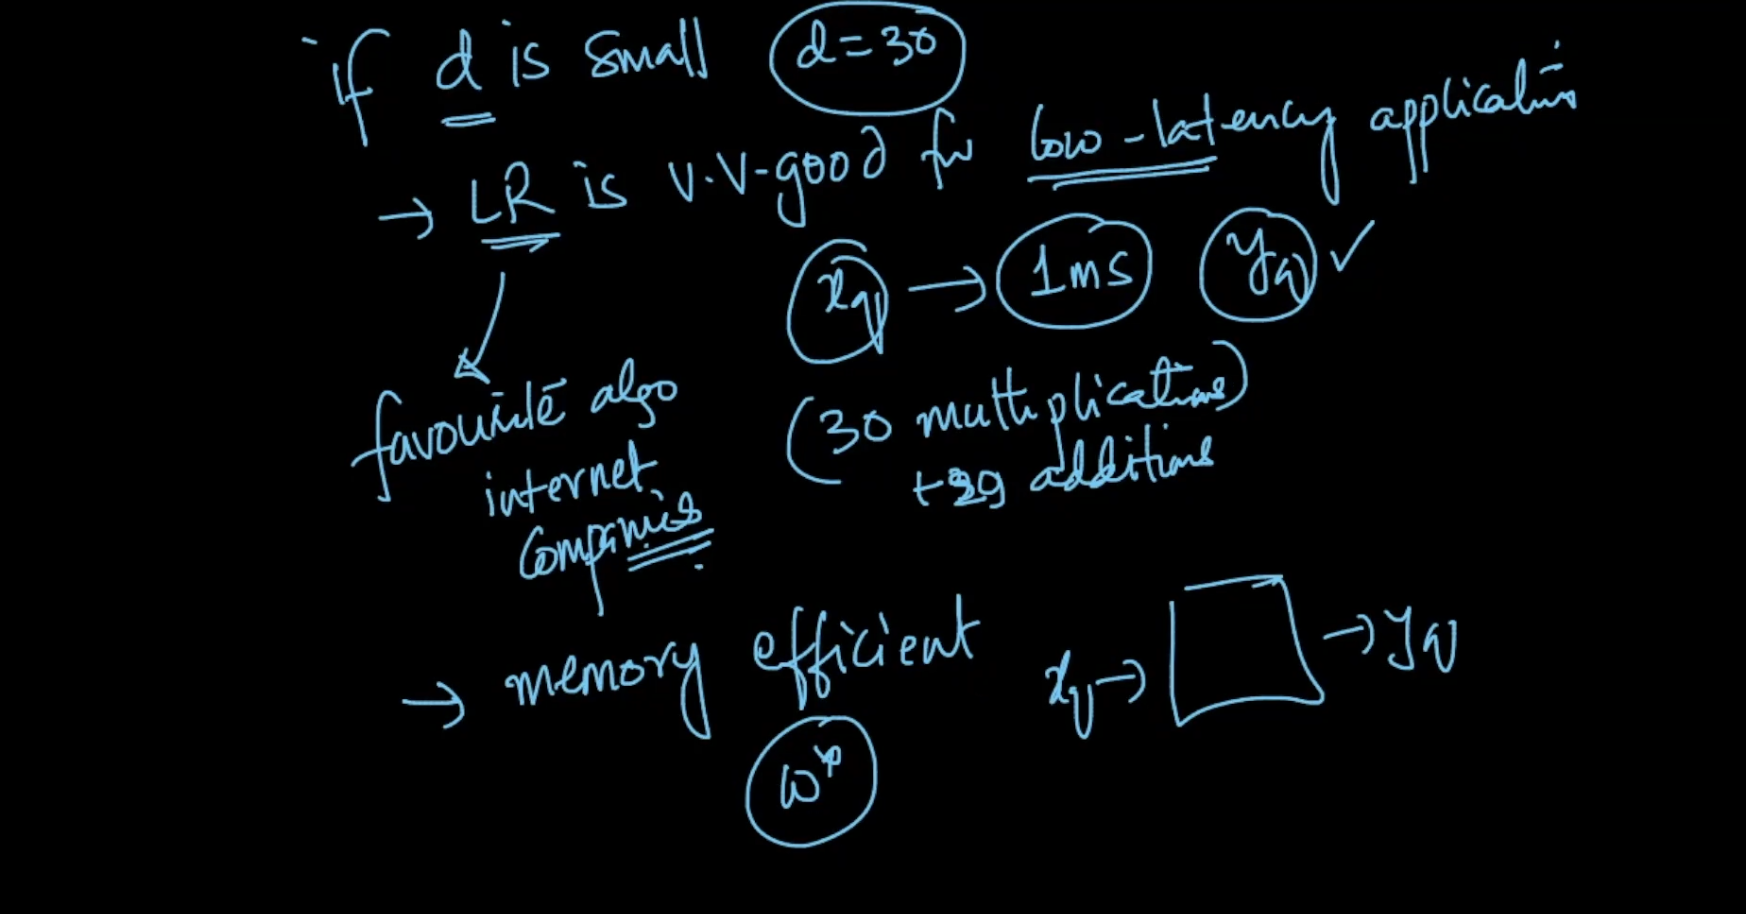 if d is small d=30
→ LR is v.v-good for low-latency applications
xq → 1ms yq ✓
favourite algo
internet
companies
(30 multiplications)
+29 additions
→ memory efficient
w*
xq → → yq